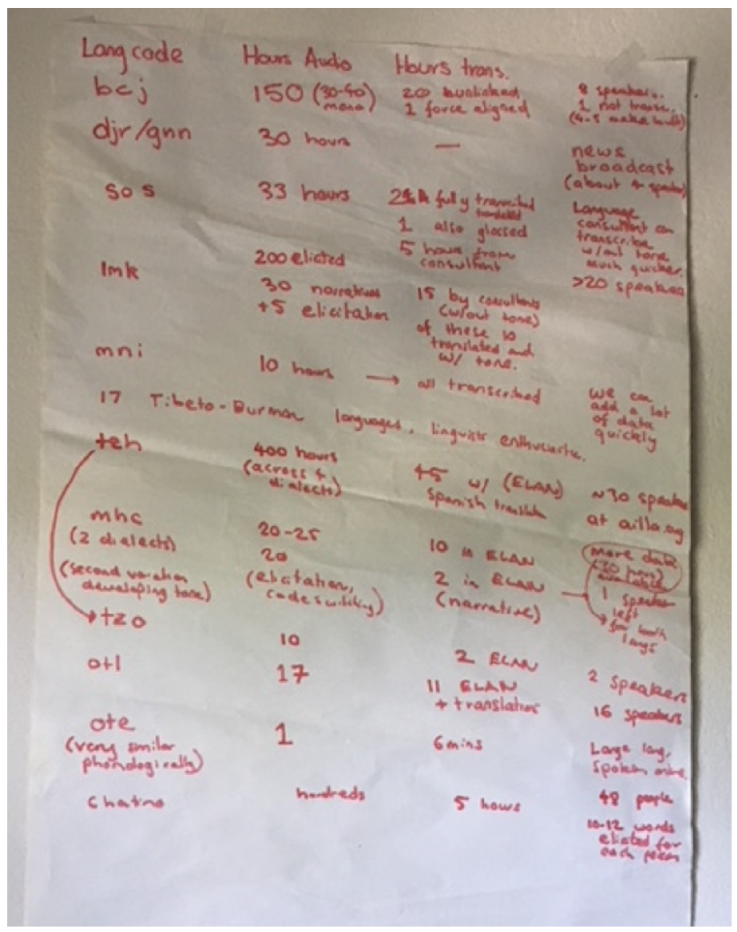 Lang code Hours Audio Hours trans.
bcj 150 (30-40 mono) 200 1 force aligned 8 speakers. 1 not transc.
djr/gnn 30 hours — news broadcast (about 4 speakers)
sos 33 hours fully transcribed 1 also glossed 5 hours from consultant Language consultant can transcribe w/out tone much quicker.
lmk 200 elicted >20 speakers
30 narratives +5 elicitation 15 by consultants (w/out tone) of these 10 translated and w/ tone.
mni 10 hours → all transcribed we can add a lot of data quickly
17 Tibeto-Burman languages, linguistic enthusiastic.
teh 400 hours (across 4 dialects) 45 w/ (ELAN) Spanish translation ~30 speakers at ailla.org
mhc (2 dialects) 20-25 10 in ELAN more data (30 hours) available
(second variation developing tone) 20 (elicitation, codeswitching) 2 in ELAN (narrative) 1 speaker left for both langs
tzo 10 2 ELAN 2 speakers
otl 17 11 ELAN + translation 16 speakers
ote (very similar phonologically) 1 6 mins Large lang, spoken
Chatino hundreds 5 hours 48 people
10-12 words elicted for each person